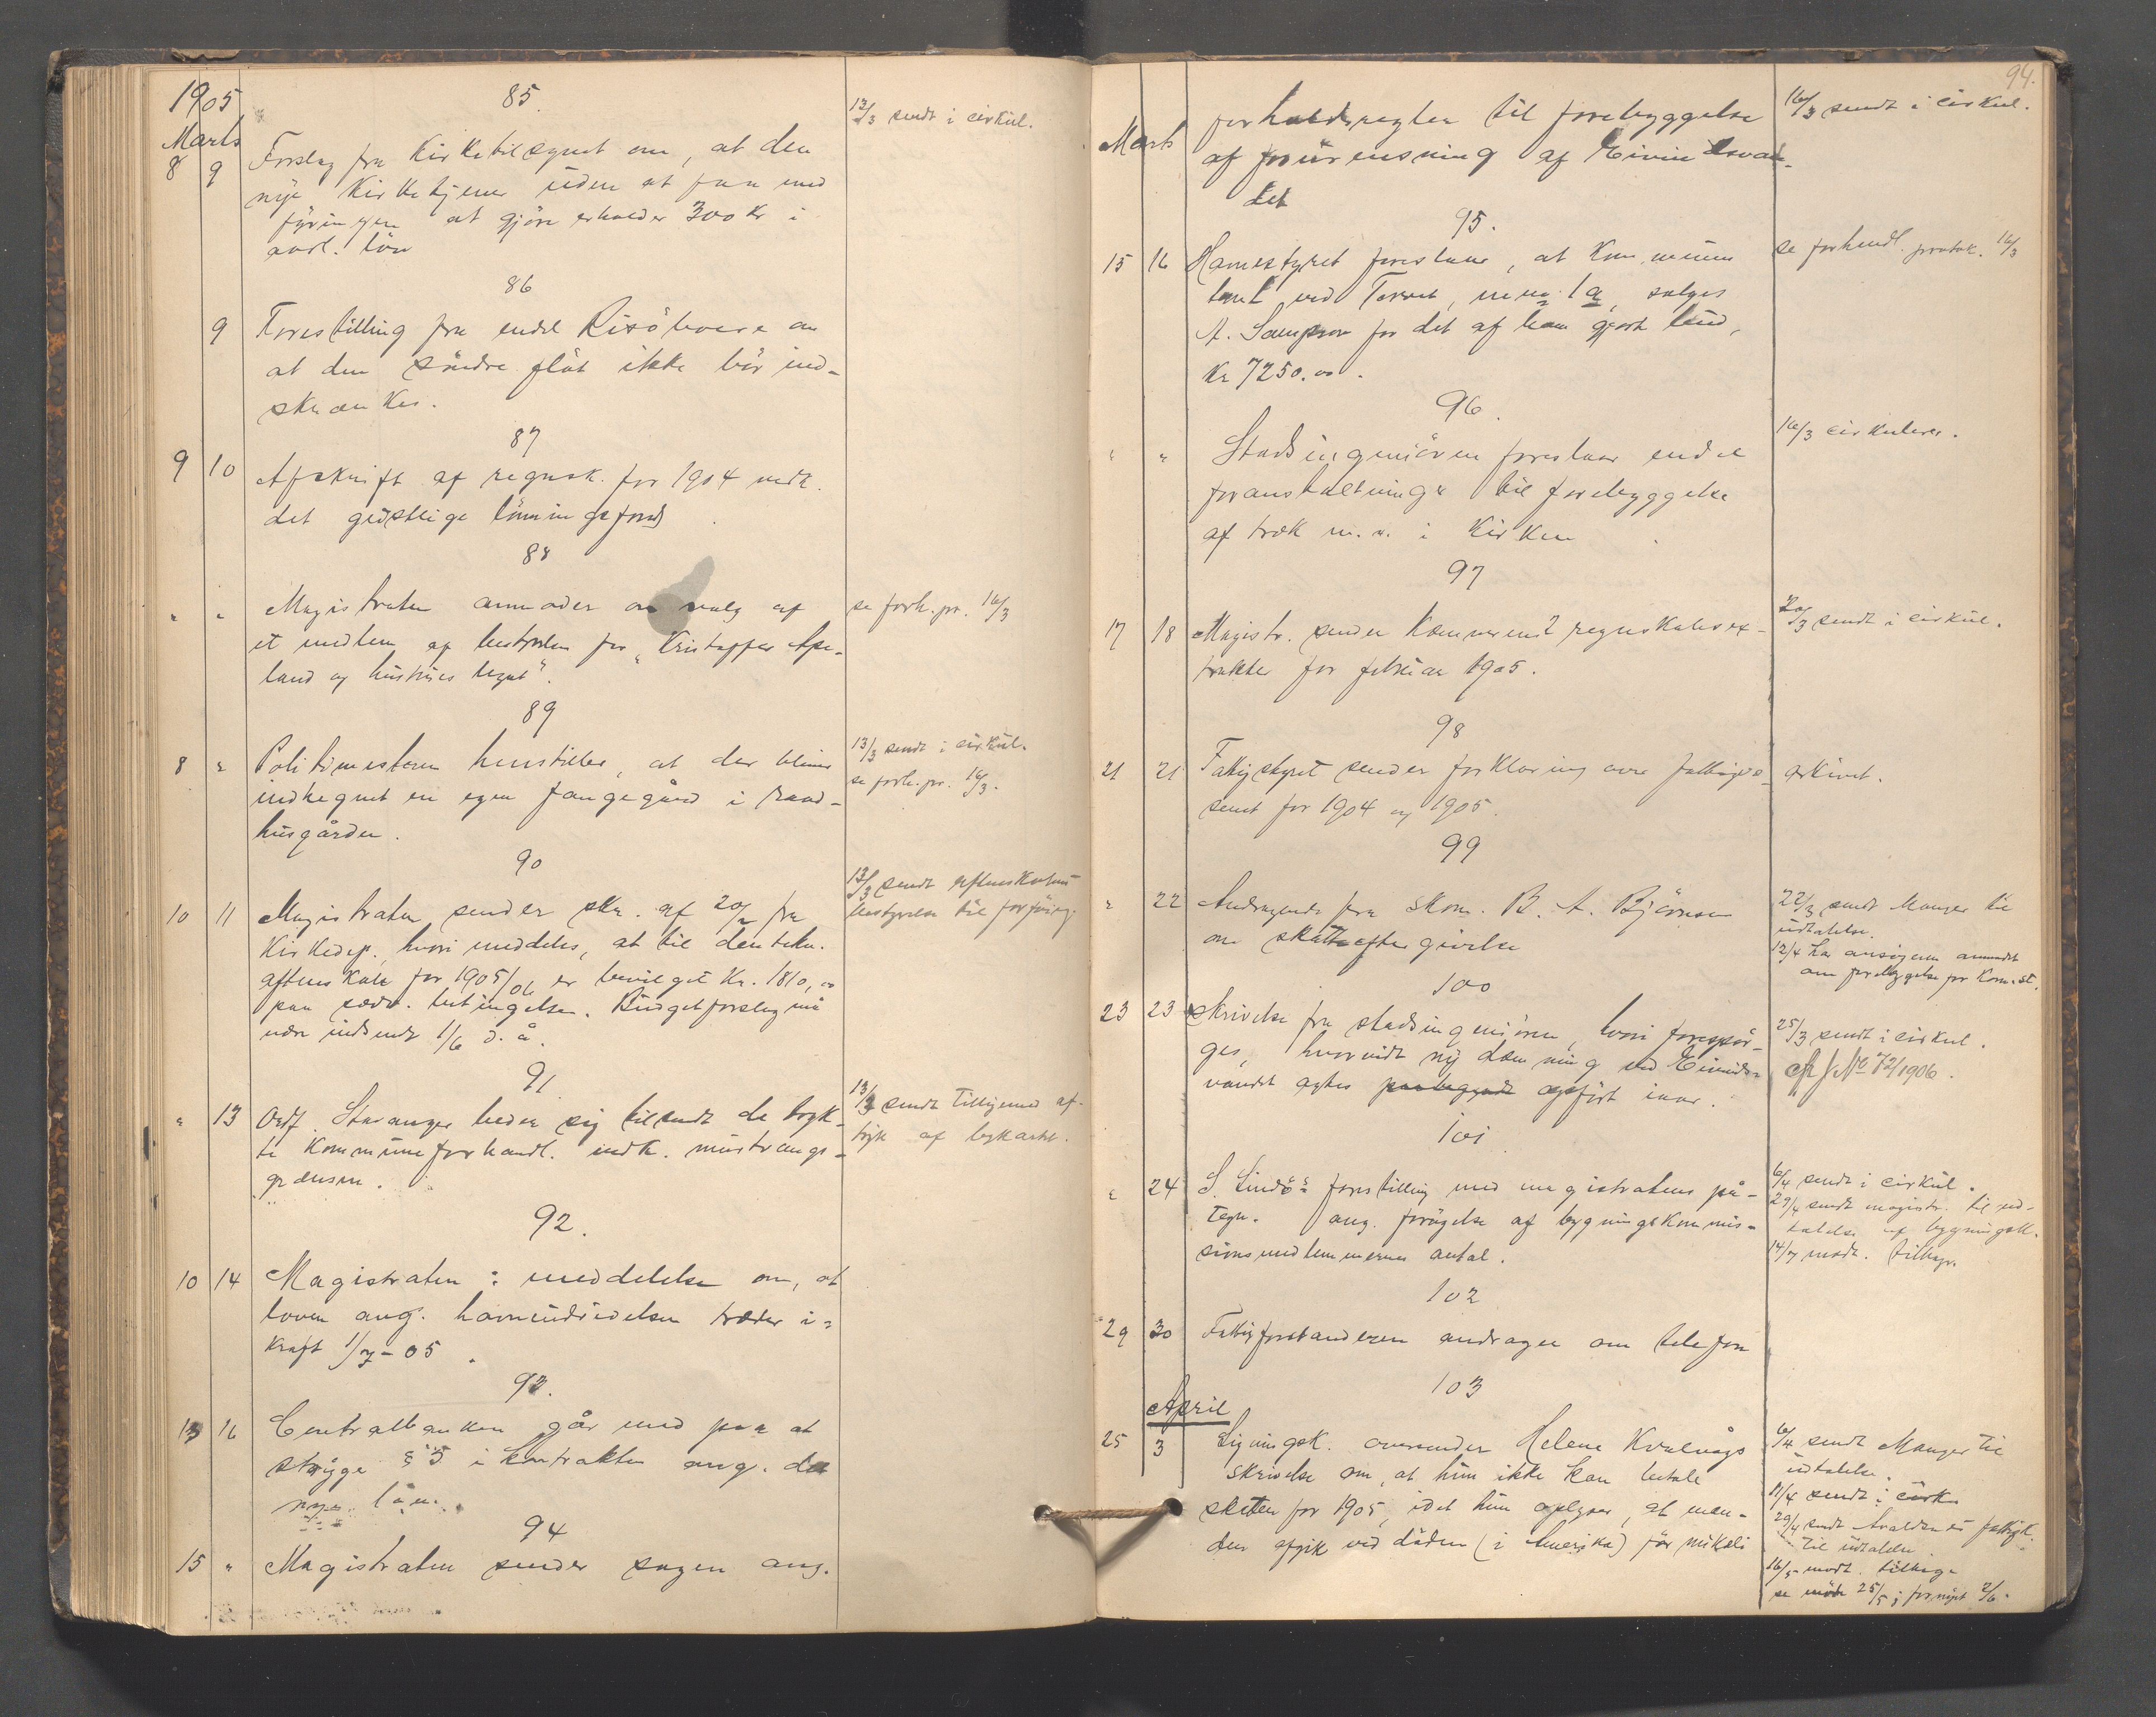 1905
Marts
85.
8 9 Forslag fra Kirketilsynet om, at den
nye Kirketjener uden at faa med
fyringen at gjøre erholder 300 Kr i
aarl. løn
13/3 sendt i cirkul.
86
9 Forestilling fra endel Risøboere om
at den søndre fløt ikke bør ind-
skrænkes.
87
9 10 Afskrift af regnsk. for 1904 vedk.
det geistlige lønningsfond.
88
" " Magistraten anmoder om valg af
et medlem af bestyrelsen for "Kristoffer Ape-
land og hustrues legat".
se forh. pr. 16/3
89
8 " Politimesteren henstiller, at der bliver
indhegnet en egen fangegård i raad-
husgården.
13/3 sendt i cirkul.
se forh. pr. 16/3.
90
10 11 Magistraten sender skr. af 20/2 fra
Kirkedep., hvori meddeles, at til den tekn.
aftenskole for 1905/06 er bevilget Kr. 1810,00
paa sædv. betingelser. Budgetforslag må
være indsendt 1/6 d. å.
13/3 sendt aftenskolens
bestyrelse til forføining.
91
" 13 Ordf. Stavanger beder sig tilsendt de tryk-
te Kommuneforhandl. vedk. mistrangs-
grænsen.
13/3 sendt tilligemed af-
tryk af bykartet.
92.
10 14 Magistraten: meddelelse om, at
loven ang. havneudvidelsen træder i=
kraft 1/7-05.
93.
13 16 Centralbanken går med paa at
stryge § 5 i kontrakten ang. det
nye lån.
94
15 " Magistraten sender sagen ang.
94.
Marts
forholdsregler til forebyggelse
af forurensning af Eivindsvan-
det
16/3 sendt i cirkul.
95.
15 16 Havnestyret foreslaar, at Kommunens
tomt ved Torvet, m.no. 1a, sælges
A. Sampson for det af ham gjorte bud,
Kr 7250.00.
se forhandl. protok. 16/3
96.
" " Stadsingeniøren foreslaar endel
foranstaltninger til forebyggelse
af træk m.v. i Kirken.
16/3 cirkulerer.
97
17 18 Magistr. sender Kæmnerens 2 regnskabsex-
trakter for februar 1905.
20/3 sendt i cirkul.
98
21 21 Fattigstyret sender forklaring over fattigvæ-
senet for 1904 og 1905.
arkivet.
99
" 22 Andragende fra skom. B. A. Bjørnsen
om skatteeftergivelse
22/3 sendt Manger til
udtalelse.
12/4 har ansøgeren anmodet
om forelæggelse for Kom.st.
100
23 23 Skrivelse fra stadsingeniøren, hvori forespør-
ges, hvorvidt ny dæmning ved Eivinds-
vandet agtes paabegyndt opført iaar.
25/3 sendt i cirkul.
Cfr J No 72/1906.
101
" 24 S. Lindøs forestilling med magistratens på-
tegn. ang. forøgelse af bygningskommis-
sionsmedlemmernes antal.
6/4 sendt i cirkul.
29/4 sendt magistr. til ud-
talelse af bygningsk.
14/7 modt. tilbage.
102
29 30 Fattigforstanderen andrager om telefon
103
April
25 3 Ligningsk. oversender Helene Kvalvågs
skrivelse om, at hun ikke kan betale
skatten for 1905, idet hun oplyser, at man-
den afgik ved døden (i Amerika) før mikeli
6/4 sendt Manger til
udtalelse.
11/4 sendt i cirk.
29/4 sendt fattigk.
til udtalelse
16/5 modt. tilbage
se møde 25/5; fornyet 2/6.